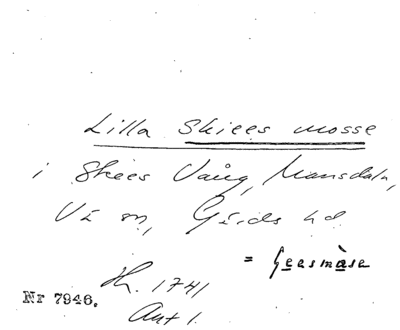 Lilla Skiees mosse
i Skees Vång, Mansdala,
Vä sn, Gärds hd
= Geesmàse
H. 1741
Nr 7946.
Akt 1.